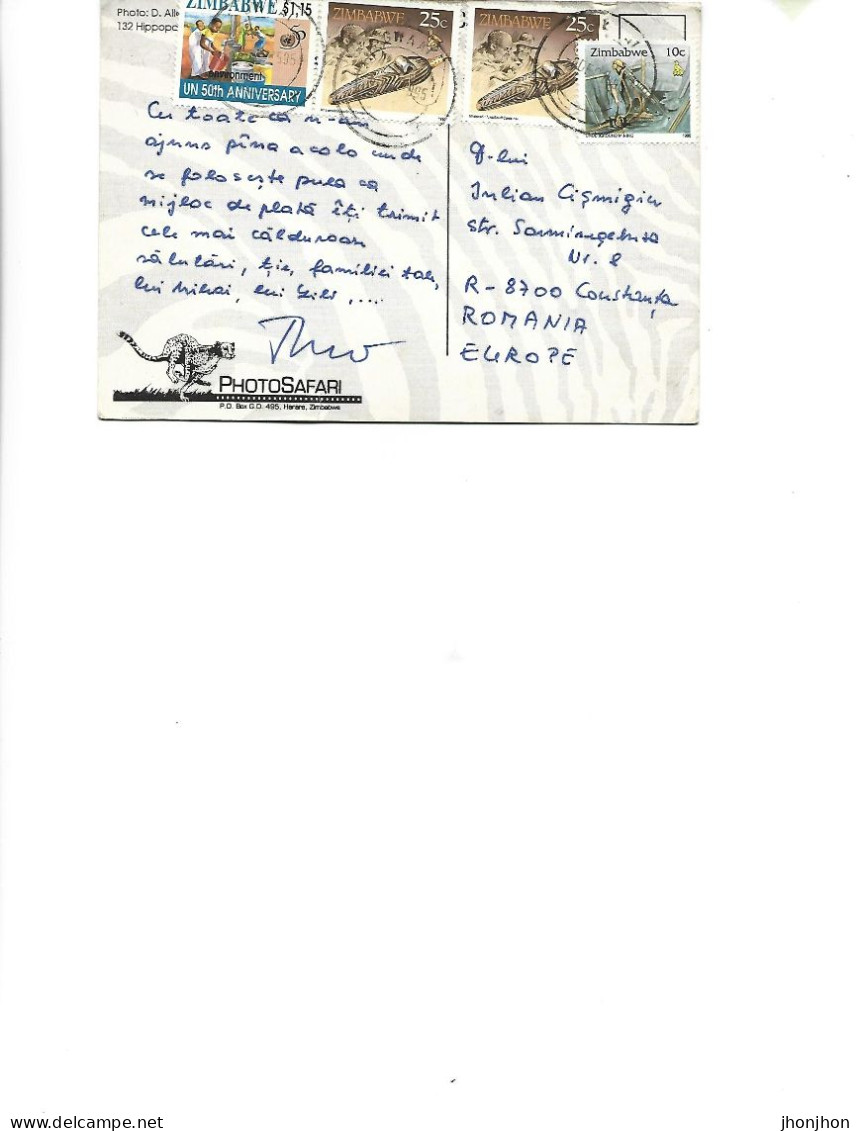 Photo: D. All
132 Hippopo
ZIMBABWE $1,15
50
environment
UN 50th ANNIVERSARY
ZIMBABWE 25c
ZIMBABWE 25c
Zimbabwe 10c
Cu toate că n-am
ajuns pîna acolo unde
se folosește pula ca
mijloc de plată îți trimit
cele mai călduroase
salutări, ție, familiei tale,
lui Mihai, lui
Theo
D-lui
Iulian Cișmigiu
str. Sarmizegetusa
Nr. 2
R-8700 Constanța
ROMANIA
EUROPE
PHOTOSAFARI
P.O. Box G.D. 495, Harare, Zimbabwe
jhonjhon